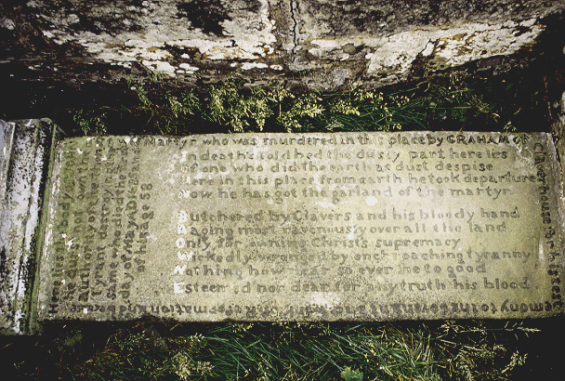 Martyr who was murdered in this place by GRAHAM of
Claverhouse for his testi
mony to the
Reformation
he durst not own the
Authority of the then
tyrant destroying the
same who died the first
day of MAY A D 1685 and
of his age 58
In death's cold bed the dusty part here lies
of one who did the earth as dust despise
Here in this place from earth he took departure
Now he has got the garland of the martyr
Butchered by Clavers and his bloody band
Raging most ravenously over all the land
Only for owning Christ's supremacy
Wickedly wronged by encroaching tyranny
Nothing how near so ever he to good
Esteemed nor dear for any truth his blood